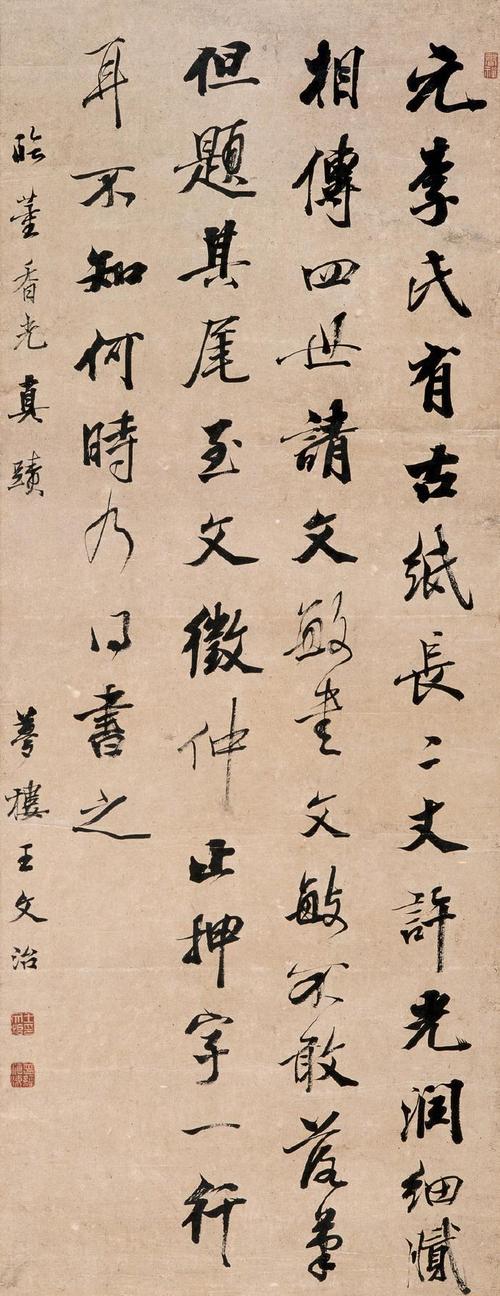 元李氏有古紙長二丈許光潤細膩
相傳四世請文敏書文敏不敢落筆
但題其尾至文徵仲止押字一行
耳不知何時乃得書之
臨董香光真蹟
夢樓王文治